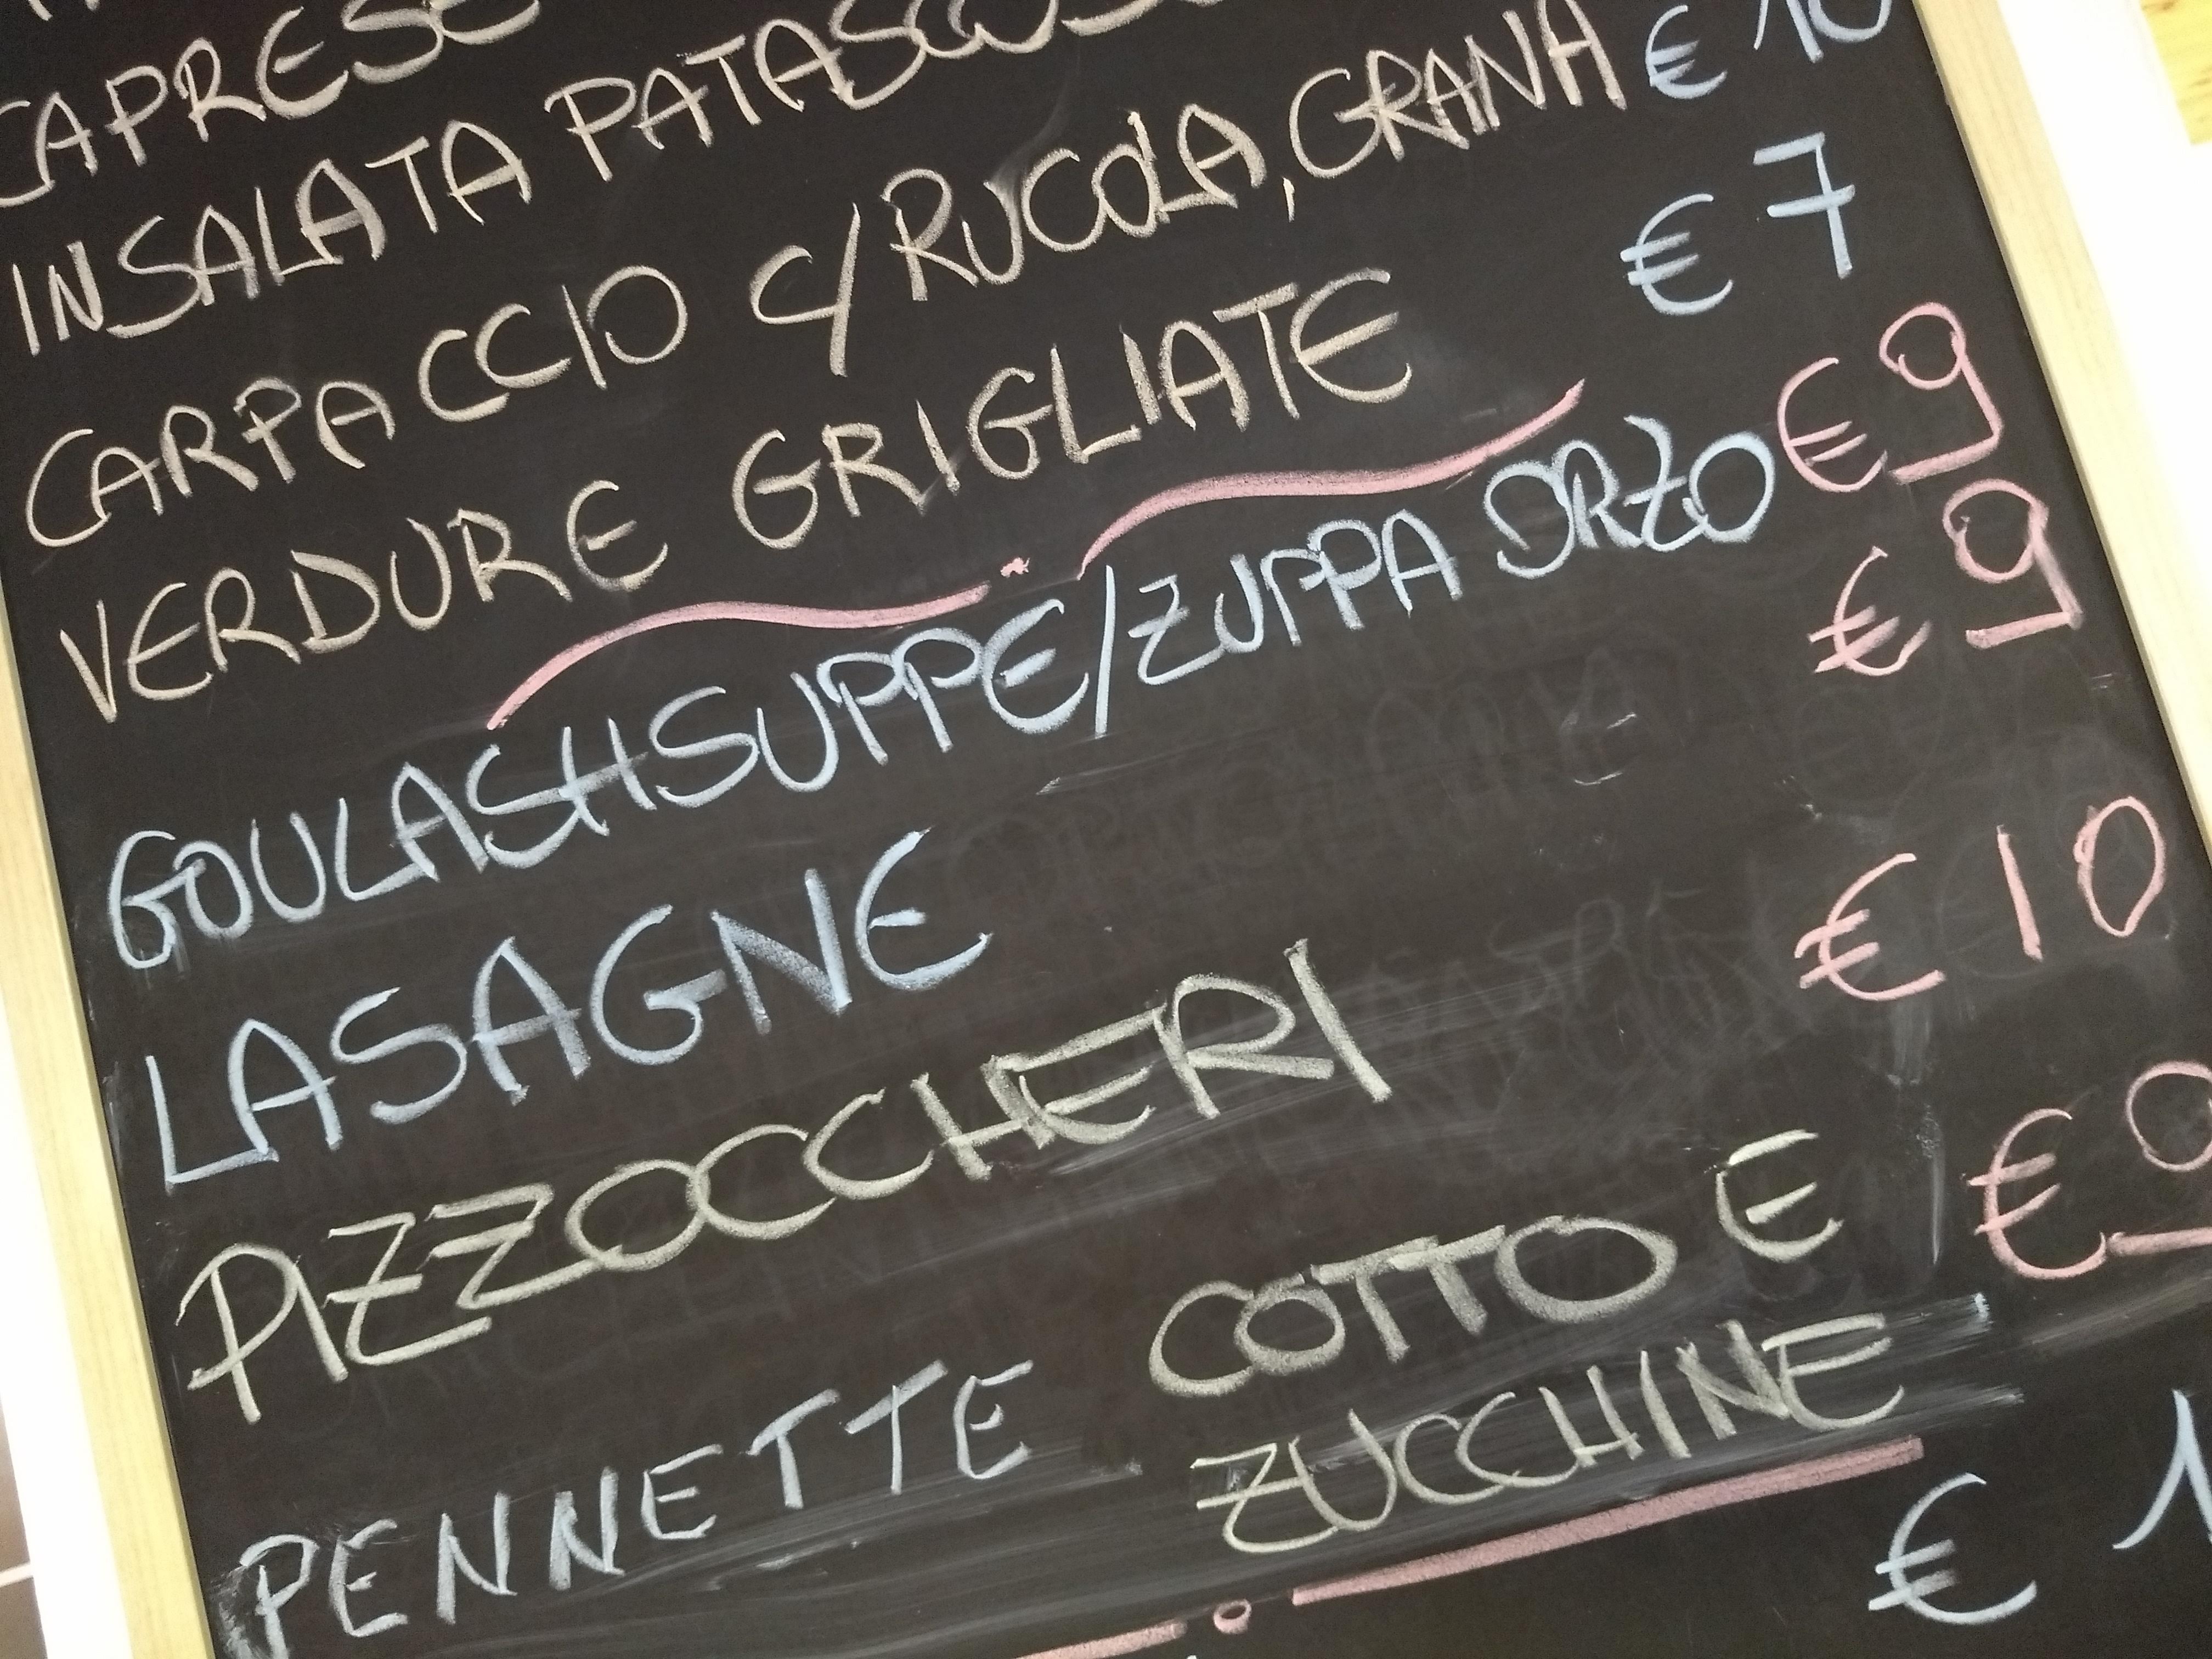 CAPRESE
INSALATA
CARPACCIO C/RUCOLA, GRANA € 10
VERDURE GRIGLIATE € 7
GOULASHSUPPE/ZUPPA ORZO € 9
LASAGNE € 9
PIZZOCCHERI € 10
PENNETTE COTTO E € 9
ZUCCHINE
€ 1